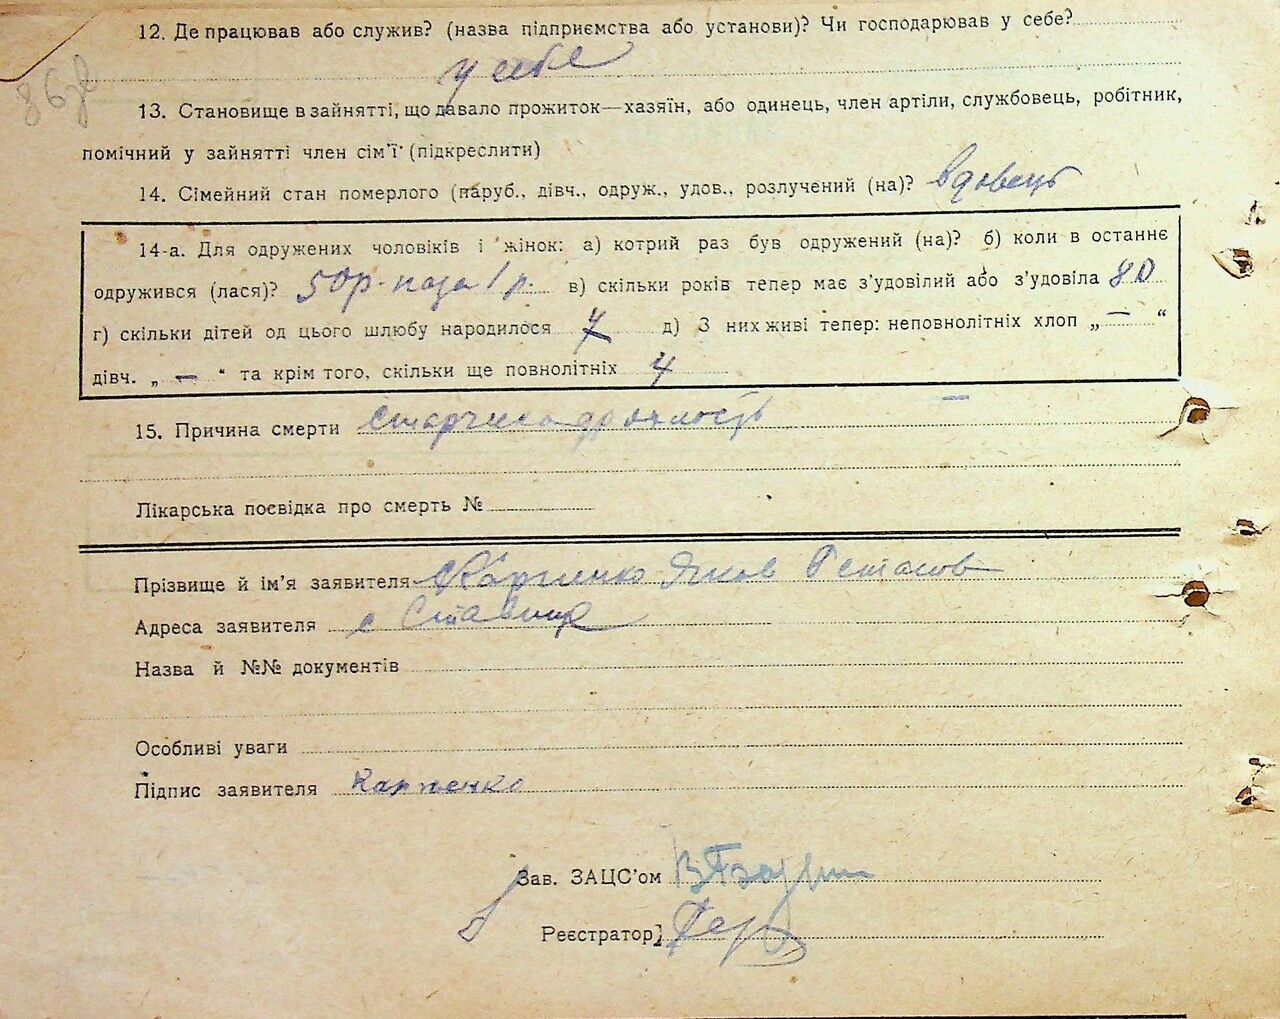 12. Де працював або служив? (назва підприємства або установи)? Чи господарював у себе?
у себе
13. Становище в зайнятті, що давало прожиток—хазяїн, або одинець, член артілі, службовець, робітник,
помічний у зайнятті член сім'ї (підкреслити)
14. Сімейний стан померлого (паруб., дівч., одруж., удов., розлучений (на)? вдовець
14-а. Для одружених чоловіків і жінок: а) котрий раз був одружений (на)? б) коли в останнє
одружився (лася)? 50 р. 1 р. в) скільки років тепер має з'удовілий або з'удовіла 80
г) скільки дітей од цього шлюбу народилося 7 д) З них живі тепер: неповнолітніх хлоп „ — “
дівч. „ — “ та крім того, скільки ще повнолітніх 4
15. Причина смерти старческа дряхлость —
Лікарська посвідка про смерть №
Прізвище й ім'я заявителя Карпенко Яков
Адреса заявителя с Ставище
Назва й №№ документів
Особливі уваги
Підпис заявителя Карпенко
Зав. ЗАЦС'ом
Реєстратор